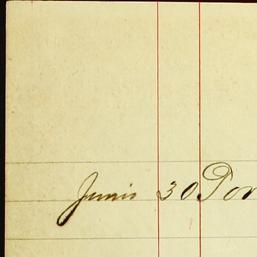 Junio 30 Por